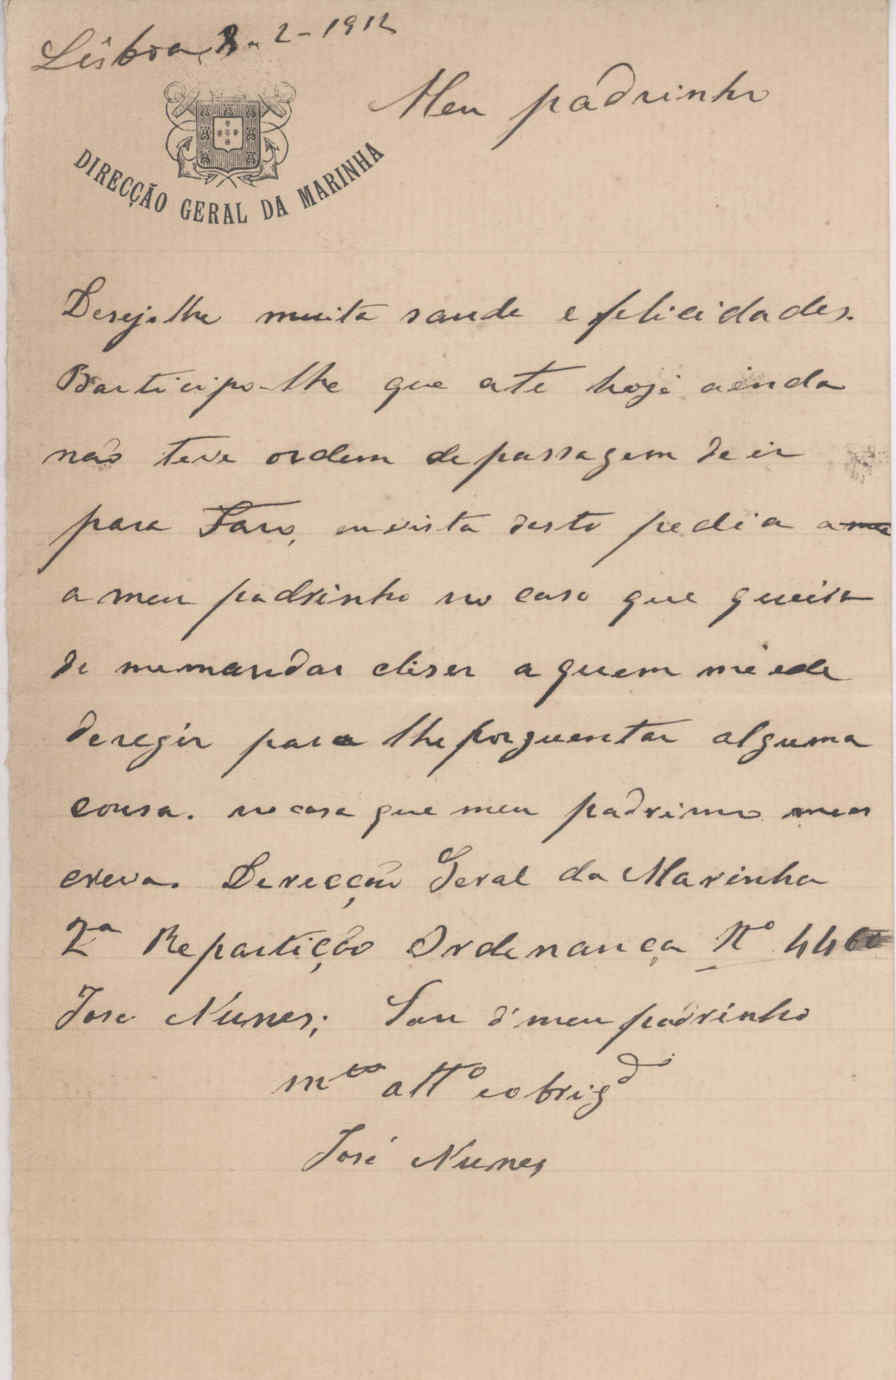 Lisboa, 8-2-1912
Meu padrinho
DIRECÇÃO GERAL DA MARINHA
Desejo-lhe muita saude e felicidades.
Participo-lhe que ate hoje ainda
não teve ordem de passagem de ir
para Faro, em vista desto pedia a
a meu padrinho no caso que queira
de me mandar diser a quem me ede
deregir para lhe porguentar alguma
cousa. no caso que meu padrinho mees
creva. Direcção Geral da Marinha
2ª Repartição Ordenança Nº 446
Jose Nunes; Sou d' meu padrinho
mto attº e obrigdo
José Nunes